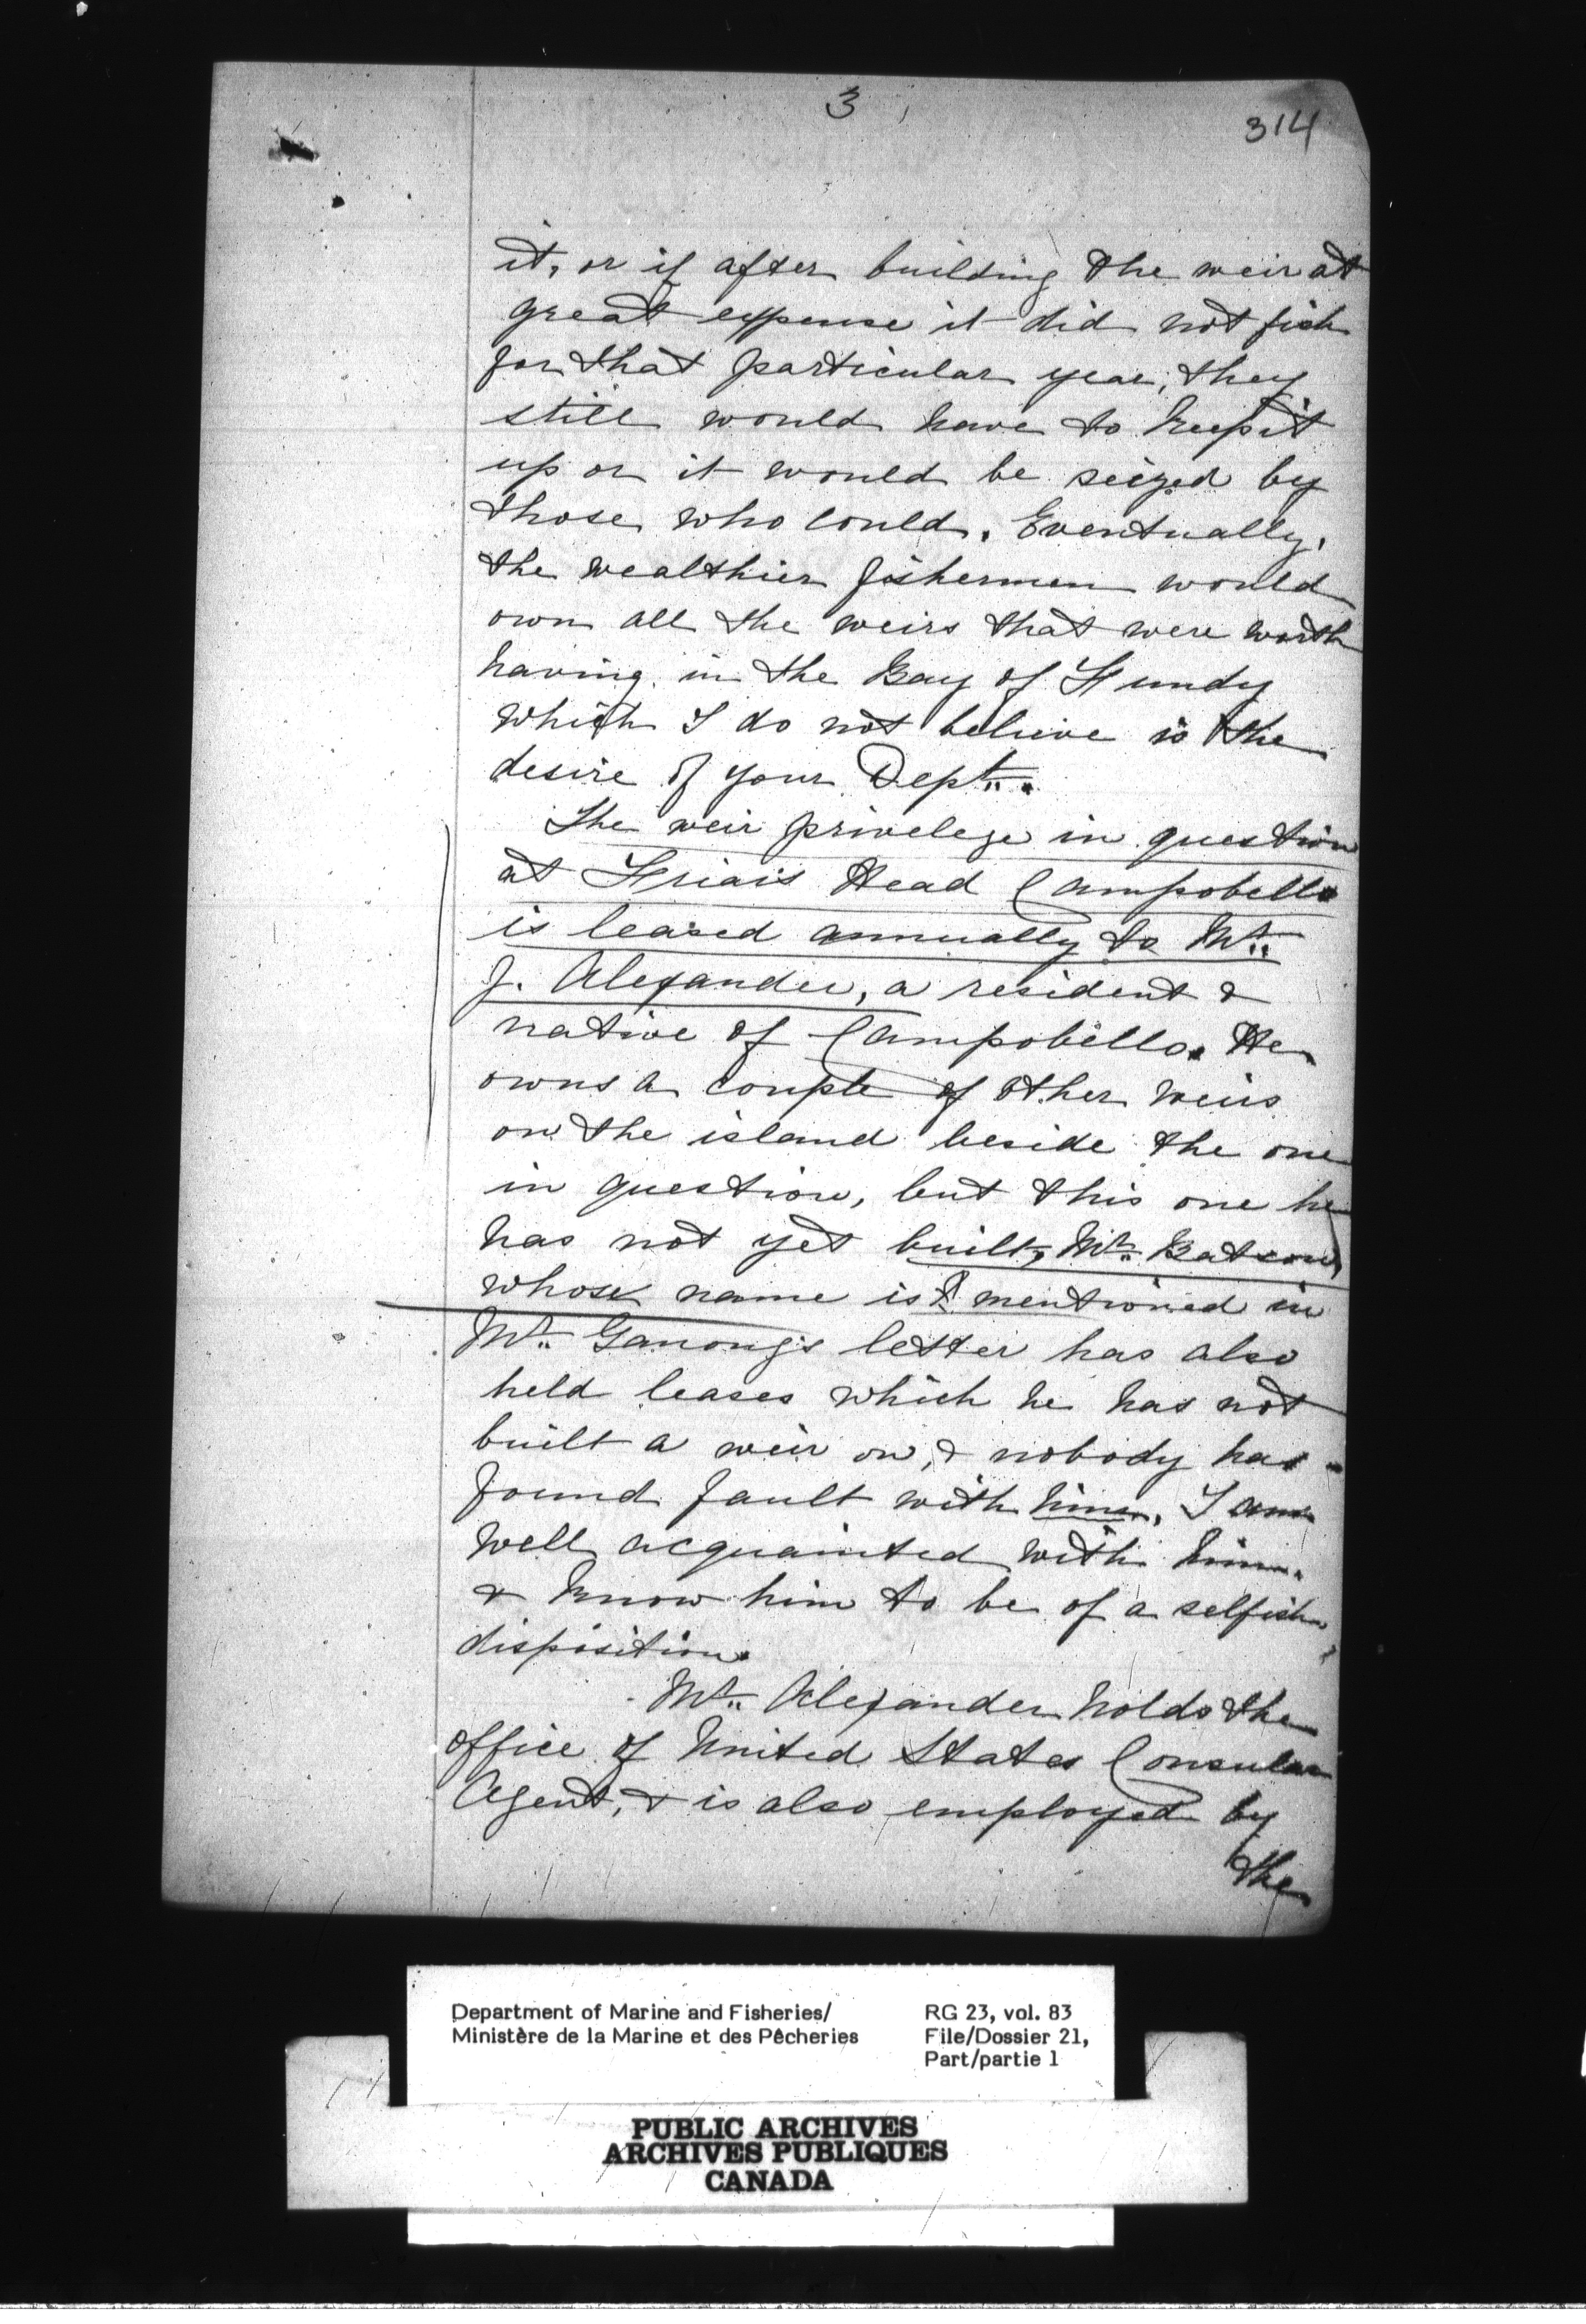 3
314
it, or if after building the weir at
great expense it did not fish
for that particular year, they
still would have to keep it
up or it would be seized by
those who could. Eventually,
the wealthier fishermen would
own all the weirs that were worth
having in the Bay of Fundy
which I do not believe is the
desire of your Dept.
The weir privelege in question
at Friais Head Campobello
is leased annually to Mr.
J. Alexander, a resident &
native of Campobello. He
owns a couple of other weirs
on the island beside the one
in question, but this one he
has not yet built, Mr. Batson,
whose name is mentioned in
Mr. Ganong's letter has also
held leases which he has not
built a weir on, & nobody has
found fault with him, I am
well acquainted with him
& know him to be of a selfish
disposition.
Mr. Alexander holds the
office of United States Consular
Agent, & is also employed by
the
Department of Marine and Fisheries/
Ministère de la Marine et des Pêcheries
RG 23, vol. 83
File/Dossier 21,
Part/partie 1
PUBLIC ARCHIVES
ARCHIVES PUBLIQUES
CANADA